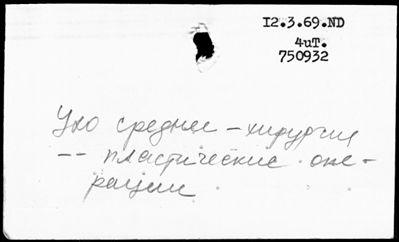 I2.3.69.ND
4иT.
750932
Ухо среднее – хирургия
-- пластические опе-
рации.